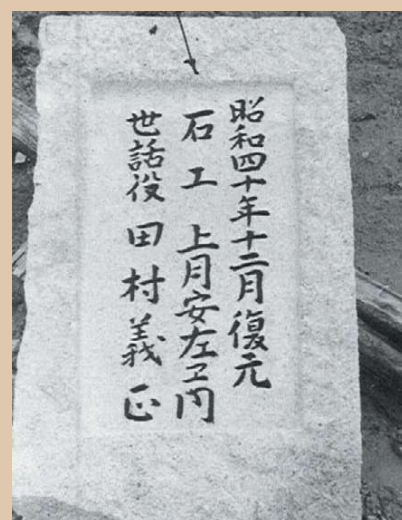 昭和四十年十二月復元
石工 上月安左ヱ门
世話役 田村義正